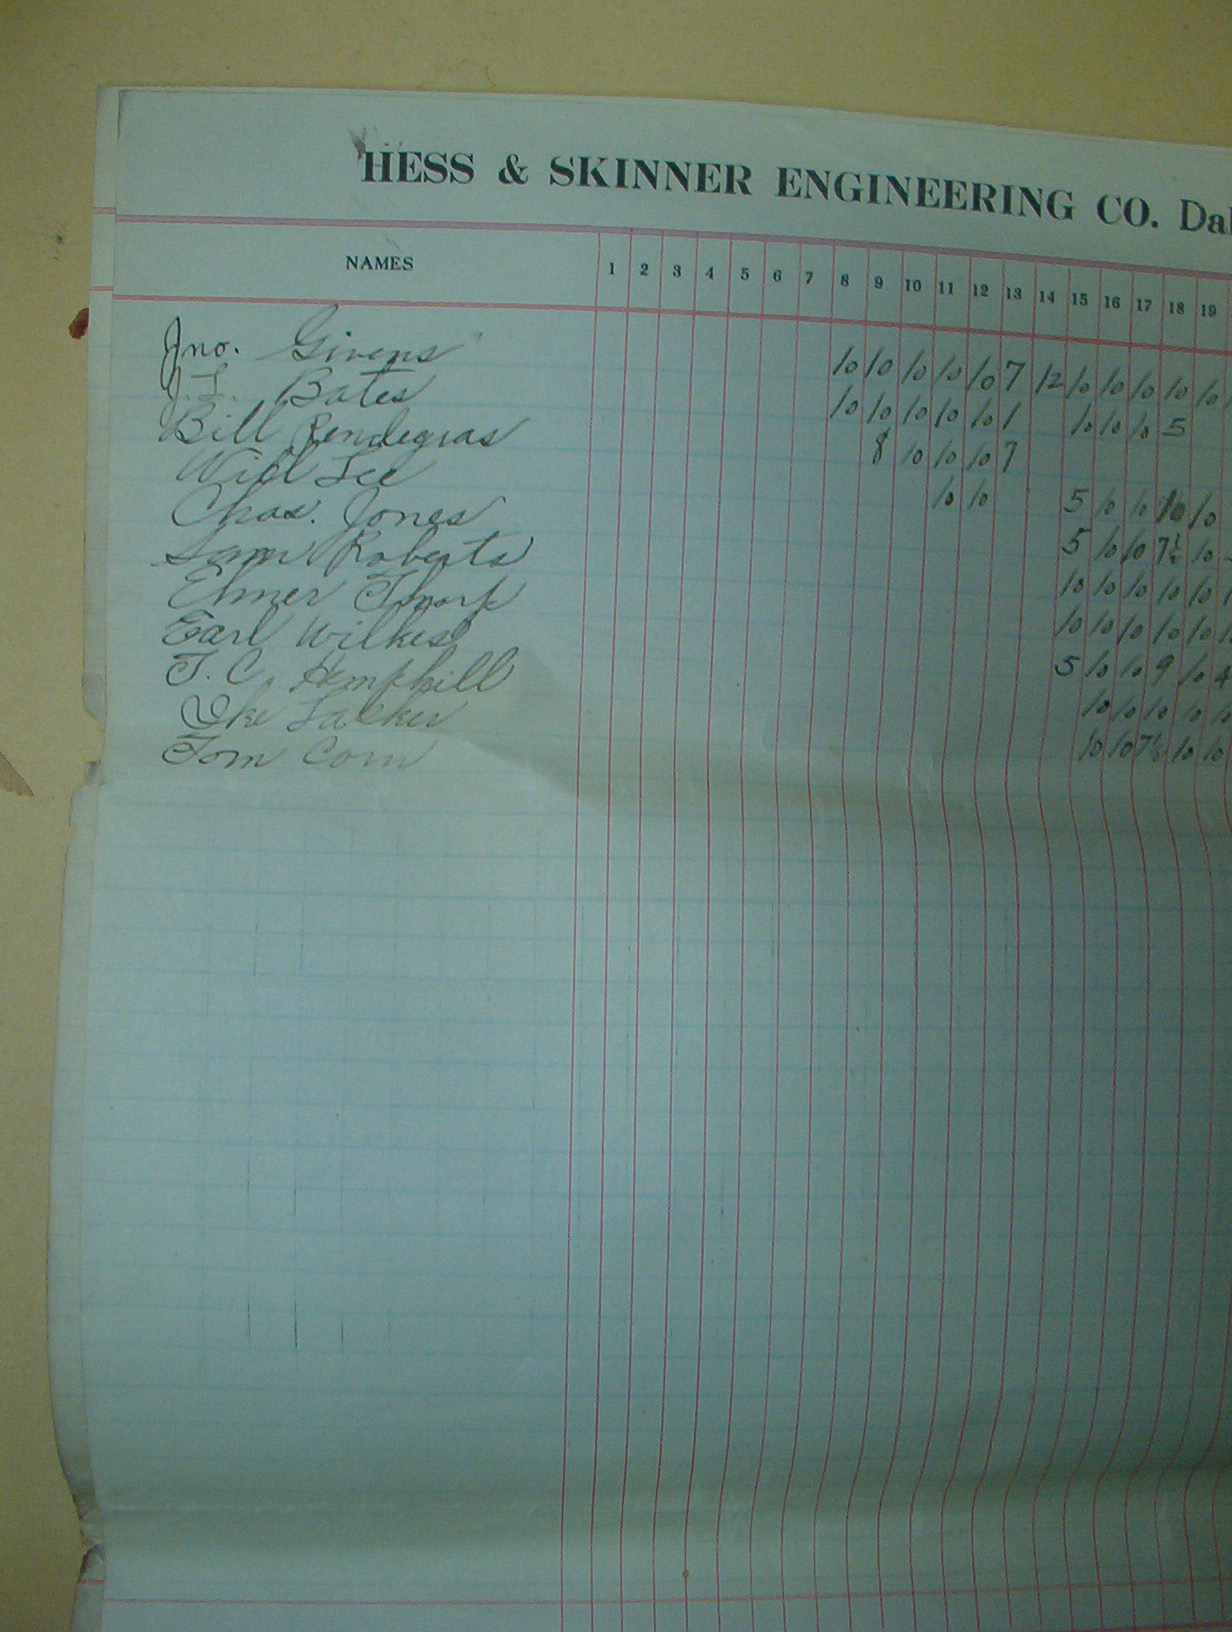 HESS & SKINNER ENGINEERING CO. Dal
NAMES 1 2 3 4 5 6 7 8 9 10 11 12 13 14 15 16 17 18 19
Jno. Givens 10 10 10 10 10 7 12 10 10 10 10 10
J.L. Bates 10 10 10 10 10 1 10 10 10 5
Bill Pendegras 8 10 10 10 7
Will Lee 10 10 5 10 10 10 10
Chas. Jones 5 10 10 7½ 10
Sam Roberts 10 10 10 10 10
Elmer 10 10 10 10 10
Earl Wilkes 5 10 10 9 10 4
T. C. Hemphill 10 10 10 10 10
Ike 10 10 7½ 10 10
Tom Corn